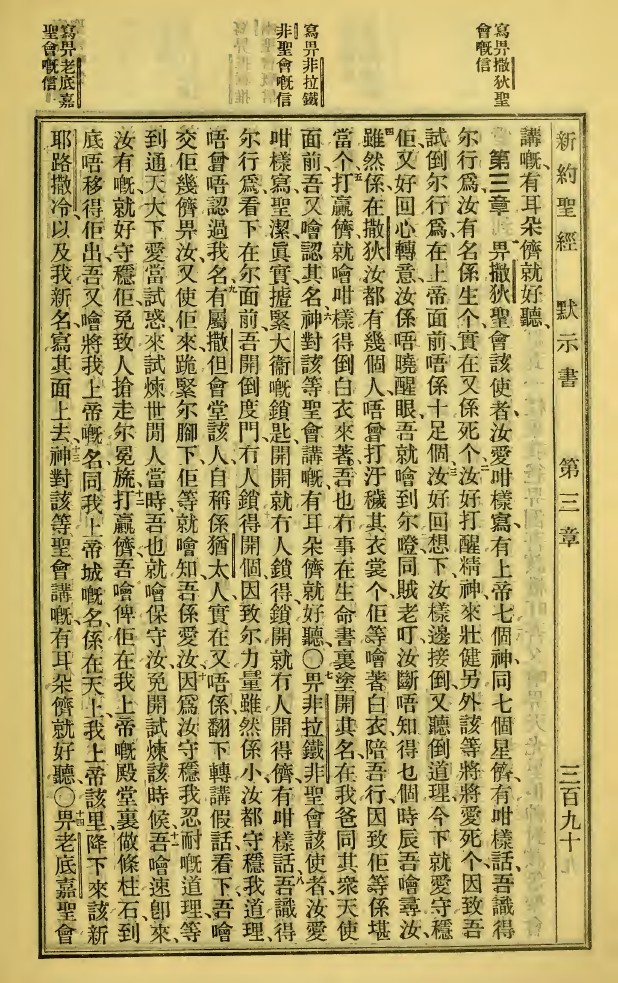 新約聖經 默示書 第三章 三百九十
寫畀撒狄聖
會嘅信
寫畀非拉鐵
非聖會嘅信
寫畀老底嘉
聖會嘅信
講嘅、有耳朵儕就好聽、
第三章 一畀撒狄聖會該使者、汝愛咁樣寫、有上帝七個神、同七個星儕、有咁樣話、吾識得
尔行爲、汝有名係生个、實在又係死个、二汝好打醒精神來、壯健另外該等將將愛死个、因致吾
試倒尔行爲、在上帝面前、唔係十足個、三汝好回想下、汝樣邊接倒、又聽倒道理、今下就愛守穩
佢、又好回心轉意、汝係唔曉醒眼、吾就噲到尔嶝、同賊老叮、汝斷唔知得乜個時辰、吾噲尋汝、
四雖然係在撒狄、汝都有幾個人、唔曾打汙穢其衣裳个、佢等噲著白衣、陪吾行、因致佢等係堪
當个、五打贏儕就噲咁樣得倒白衣來著、吾也冇事在生命書裏塗開其名、在我爸同其衆天使
面前、吾又噲認其名、六神對該等聖會講嘅、有耳朵儕就好聽、〇七畀非拉鐵非聖會該使者、汝愛
咁樣寫、聖潔眞實、攄緊大衞嘅鎖匙、開開就冇人鎖得、鎖開就冇人開得儕、有咁樣話、八吾識得
尔行爲、看下在尔面前、吾開倒度門、冇人鎖得開個、因致尔力量雖然係小、汝都守穩我道理、
唔曾唔認過我名、九有屬撒但會堂該人、自稱係猶太人、實在又唔係、翻下轉講假話、看下、吾噲
交佢幾儕畀汝、又使佢來跪緊尔腳下、佢等就噲知吾係愛汝、十因爲汝守穩我忍耐嘅道理、等
到通天大下愛當試惑、來試煉世閒人當時、吾也就噲保守汝免開試煉該時候、十一吾噲速卽來、
汝有嘅就好守穩佢、免致人搶走尔冕旒、十二打贏儕、吾噲俾佢在我上帝嘅殿堂裏做條柱石、到
底唔移得佢出、吾又噲將我上帝嘅名、同我上帝城嘅名、係在天上我上帝該里降下來該新
耶路撒冷、以及我新名、寫其面上去、十三神對該等聖會講嘅、有耳朵儕就好聽、〇十四畀老底嘉聖會